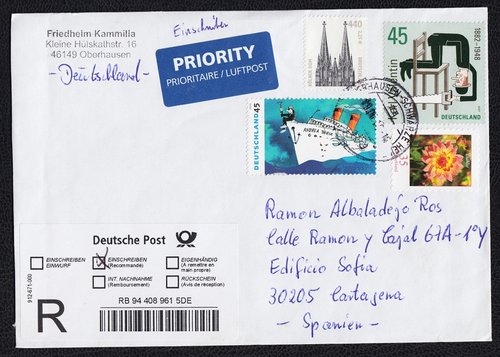 Friedhelm Kammilla
Kleine Hülskathstr. 16
46149 Oberhausen
- Deutschland -
Einschreiben
PRIORITY
PRIORITAIRE / LUFTPOST
440
KÖLNER DOM
45
1882-1948
DEUTSCHLAND
DEUTSCHLAND 45
ANDREA DORIA
35
Deutsche Post
EINSCHREIBEN EINWURF
EINSCHREIBEN
(Recommandé)
EIGENHÄNDIG
(A remettre en
main propre)
INT. NACHNAHME
(Remboursement)
RÜCKSCHEIN
(Avis de réception)
912-671-000
R
RB 94 408 961 5DE
Ramon Albaladejo Ros
Calle Ramon y Cajal 67A-1ºY
Edificio Sofia
30205 Cartagena
- Spanien -